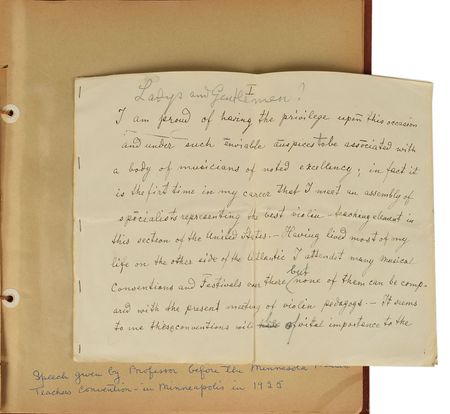 I
Ladys and Gentlemen!
I am proud of having the privilege upon this occasion
and under such enviable auspices to be associated with
a body of musicians of noted excellency; in fact it
is the first time in my career that I meet an assembly of
specialists representing the best violin teaching element in
this section of the United States. – Having lived most of my
life on the other side of the Atlantic I attendet many Musical
but
Conventions and Festivals over there none of them can be comp-
ared with the present meeting of violin pedagogs. – It seems
to me these conventions will of vital importance to the
Speech given by Professor before the Minnesota
Teachers Convention – in Minneapolis in 1925